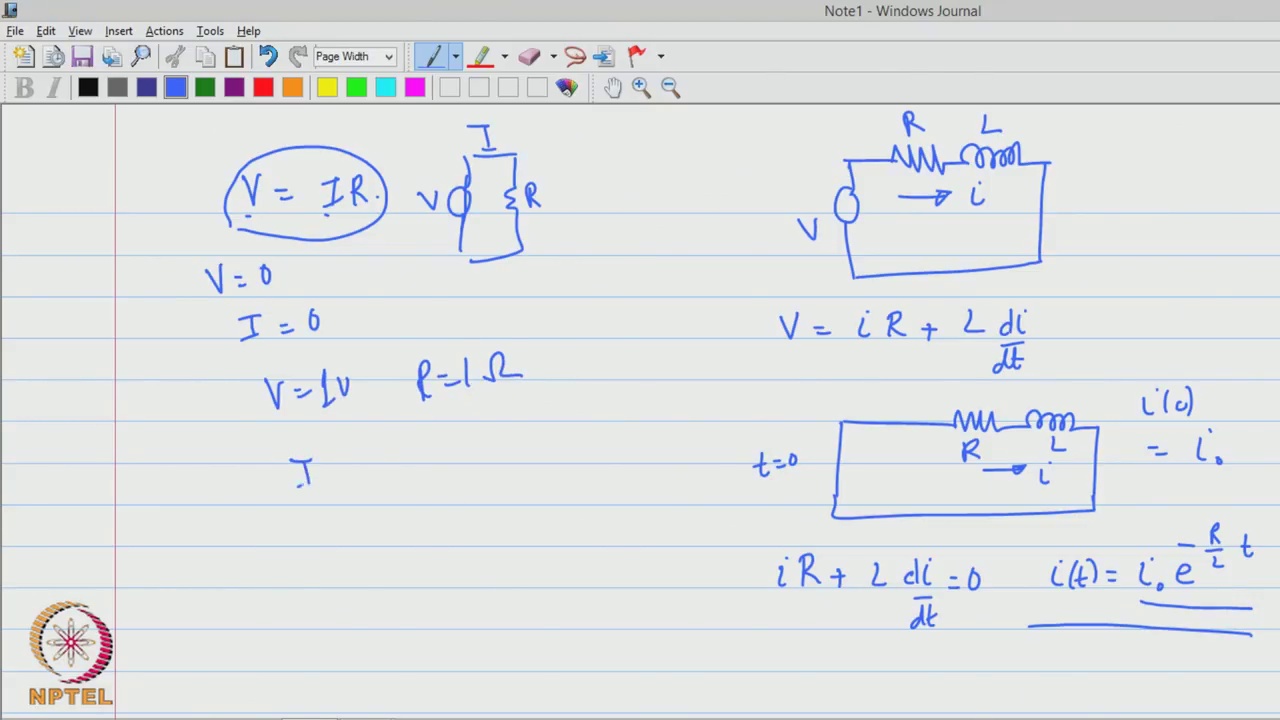 Note1 - Windows Journal
File Edit View Insert Actions Tools Help
Page Width
V = IR.
I
V
R
V = 0
I = 0
V = 1V R = 1 Ω
I
R L
i
V
V = i R + L di/dt
t=0
R L
i
i(0)
= i₀
i R + L di/dt = 0
i(t) = i₀ e^(-R/L t)
NPTEL